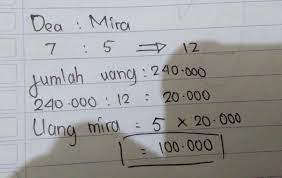 Dea : Mira
7 : 5 ⇒ 12
Jumlah uang : 240.000
240.000 : 12 : 20.000
Uang mira = 5 × 20.000
= 100.000